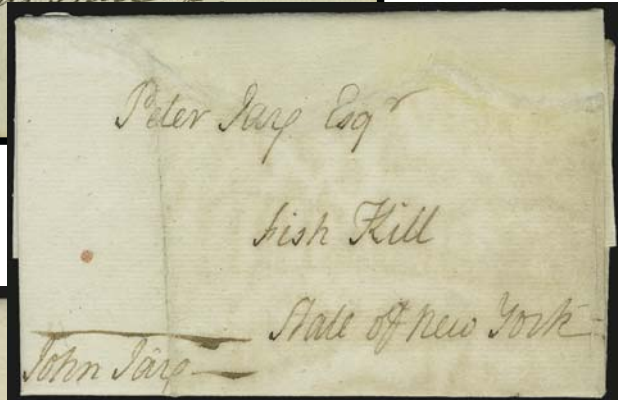 Peter Jay Esqr
Fish Kill
State of New York
John Jay